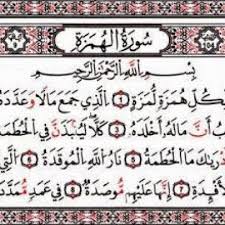 سُورَةُ الْهُمَزَةِ
بِسْمِ اللَّهِ الرَّحْمَٰنِ الرَّحِيمِ
لِكُلِّ هُمَزَةٍ لُّمَزَةٍ ١ الَّذِي جَمَعَ مَالًا وَعَدَّدَهُ
أَنَّ مَالَهُ أَخْلَدَهُ ٣ كَلَّا لَيُنبَذَنَّ فِي الْحُطَمَةِ
دْرَىٰكَ مَا الْحُطَمَةُ ٥ نَارُ اللَّهِ الْمُوقَدَةُ ٦ الَّتِي
لْأَفْئِدَةِ ٧ إِنَّهَا عَلَيْهِم مُّؤْصَدَةٌ ٨ فِي عَمَدٍ مُّمَدَّدَ